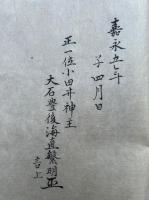 嘉永五年
子四月日
正一位小田井神主
大石豊後海直繁明
吉上